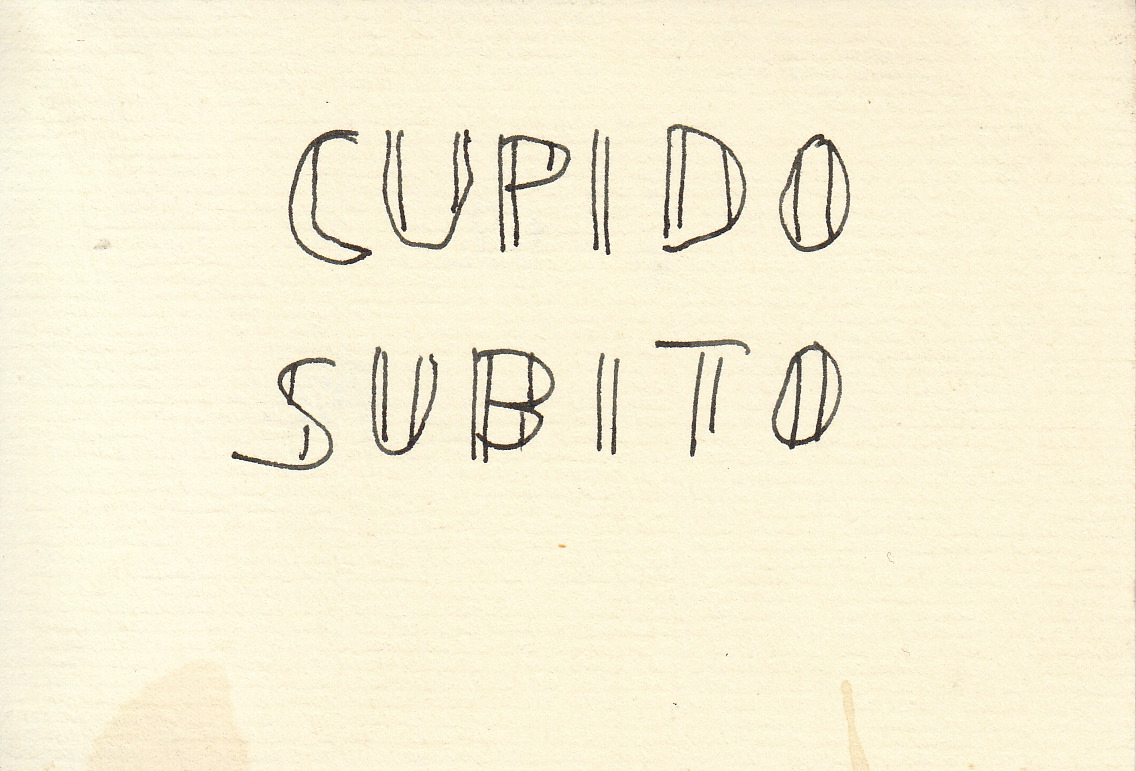 CUPIDO
SUBITO